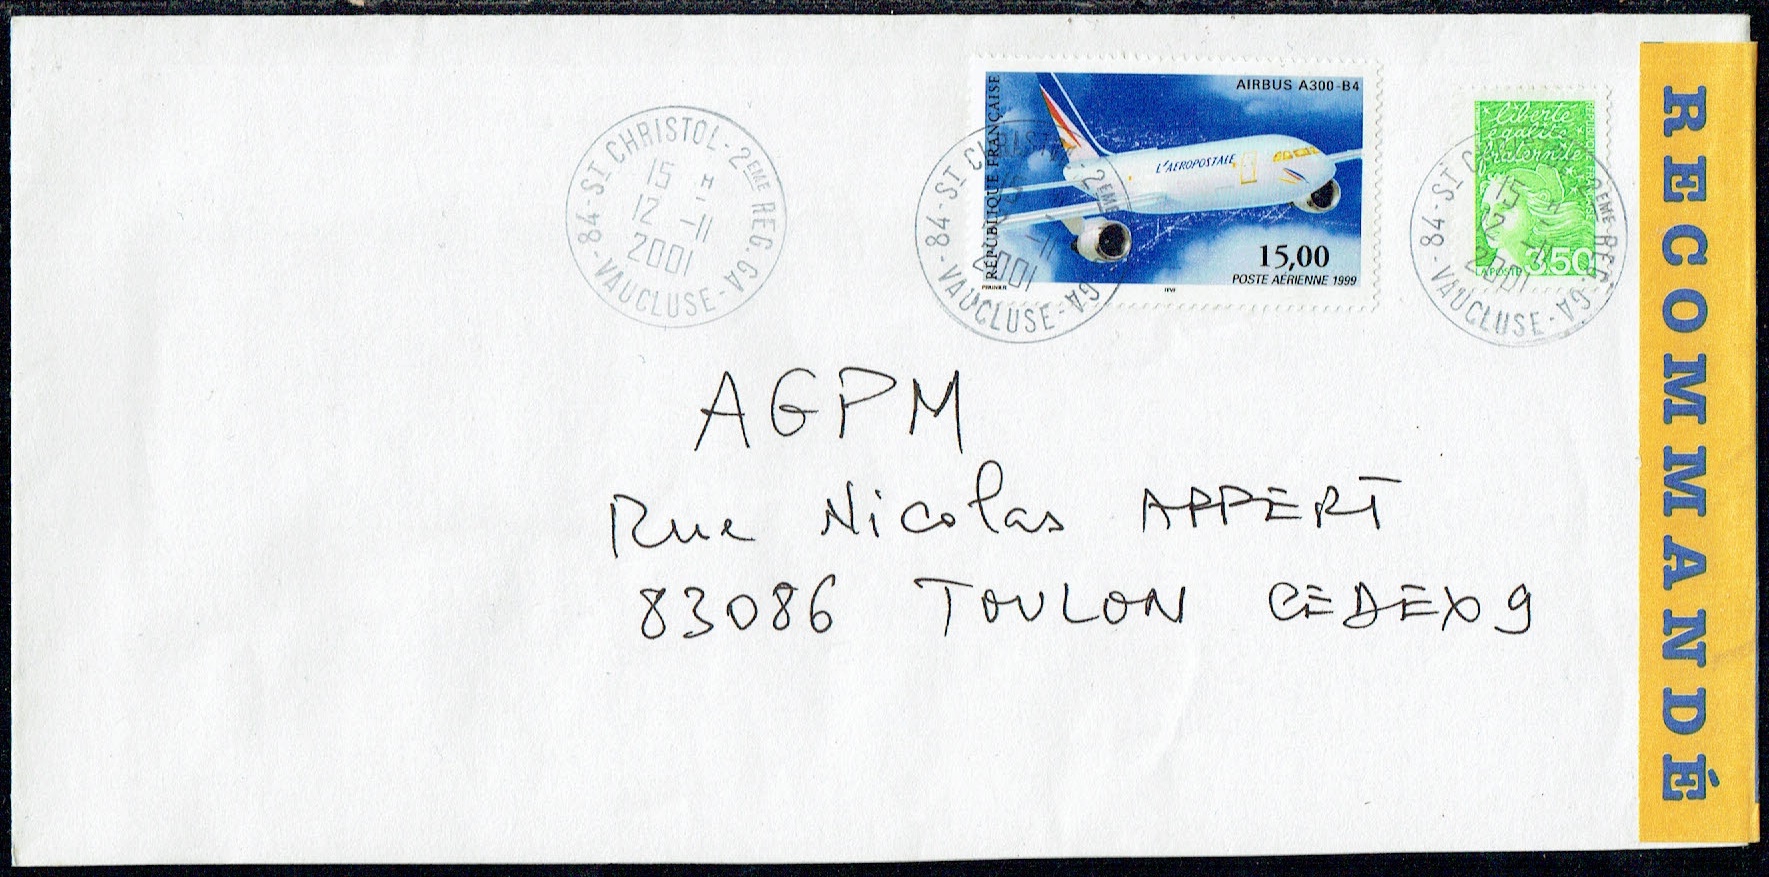 84 - ST CHRISTOL - 2EME REG. GA - VAUCLUSE -
15 H
12 -11
2001
RÉPUBLIQUE FRANÇAISE
AIRBUS A300-B4
L'AEROPOSTALE
15,00
POSTE AÉRIENNE 1999
84 - ST CHRISTOL - 2EME REG. GA - VAUCLUSE -
15 H
12 -11
2001
liberté
égalité
fraternité
LA POSTE 3,50
84 - ST CHRISTOL - 2EME REG. GA - VAUCLUSE -
15 H
12 -11
2001
RECOMMANDÉ
AGPM
Rue Nicolas APPERT
83086 TOULON CEDEX 9